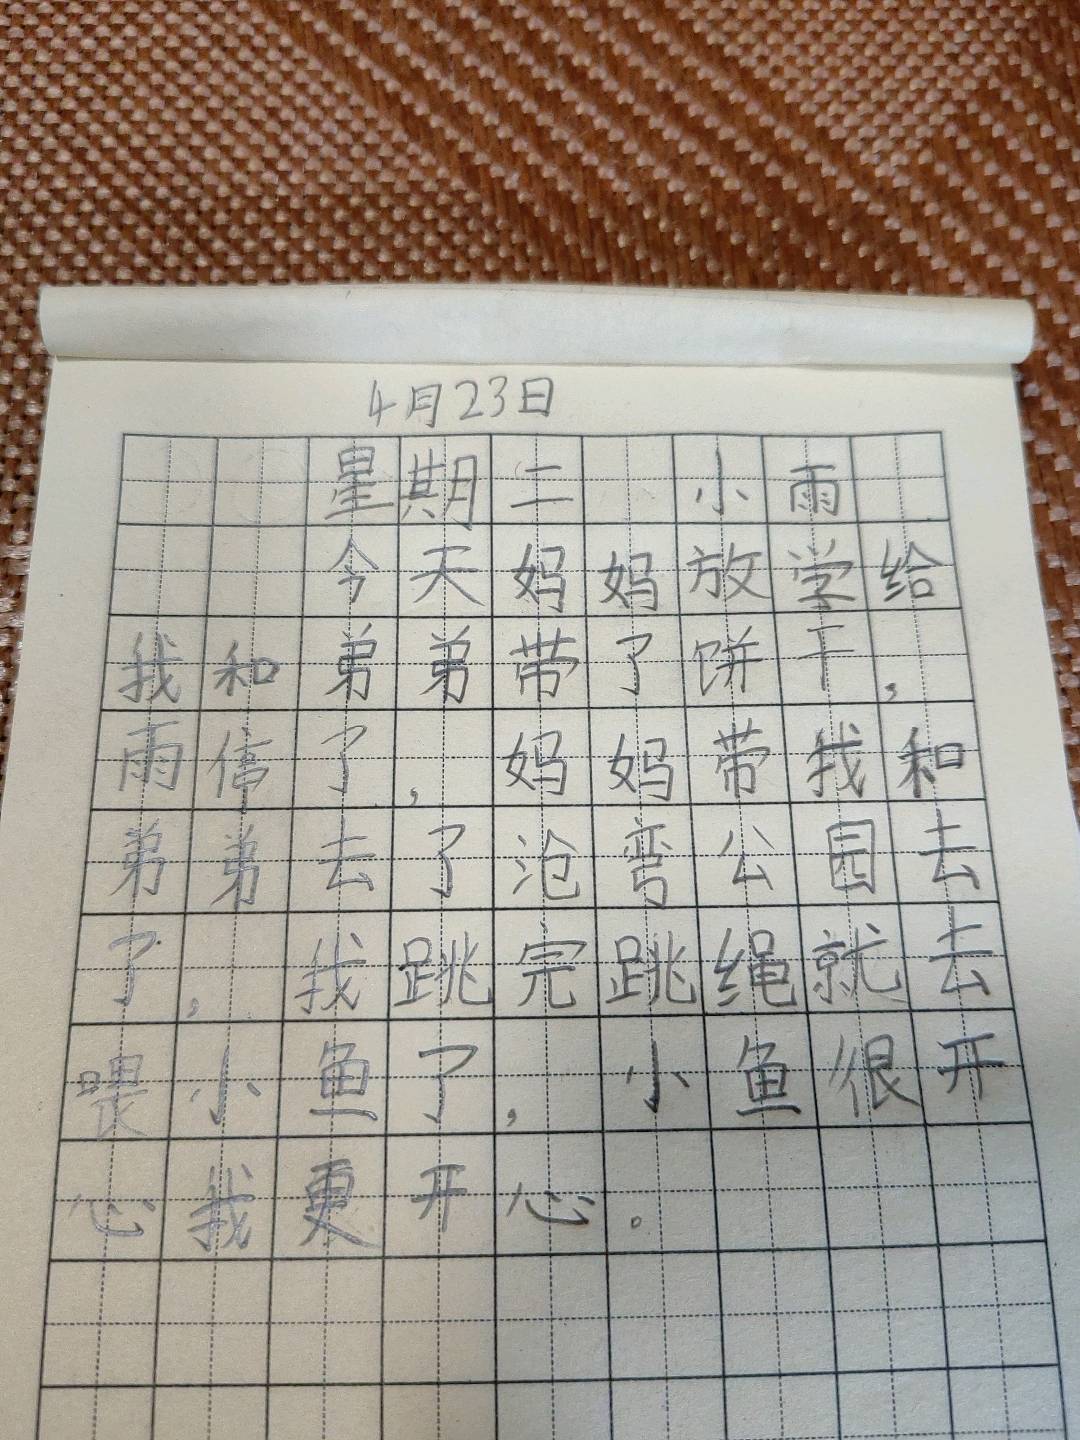 4月23日
星期二 小雨
今天妈妈放学给
我和弟弟带了饼干,
雨停了,妈妈带我和
弟弟去了沧弯公园去
了,我跳完跳绳就去
喂小鱼了,小鱼很开
心我更开心。